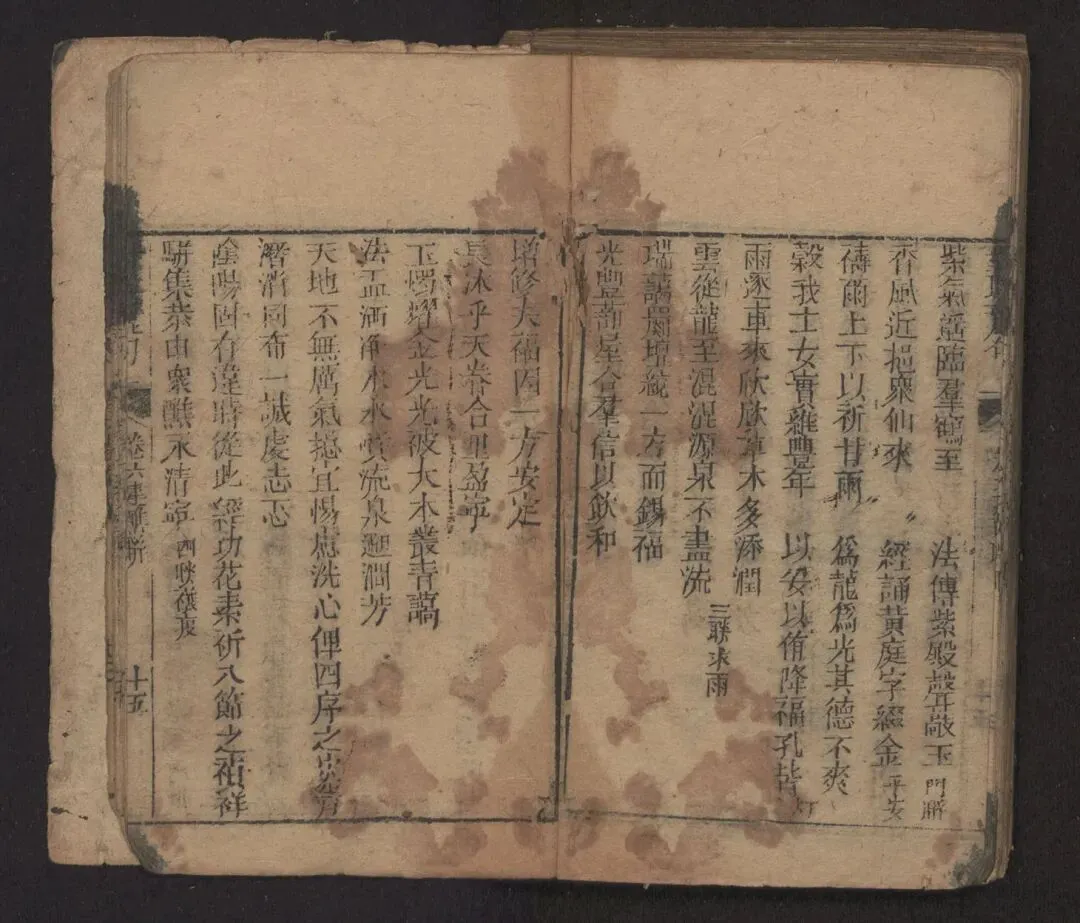 紫氣遙臨羣鶴至 法傳紫殿聲敲玉 門
香風近挹衆仙來 經誦黃庭字綴金 平安
禱爾上下以祈甘雨 爲龍爲光其德不爽
穀我士女實維豐年 以安以侑降福孔皆
雨逐車來欣欣草木多添潤
雲從龍至混混源泉不盡流 三聯求雨
瑞藹 壇統一方而錫福
光豐蔀星合羣信以飲和
增修大福囿一方安定
長沐乎天眷合里盈寧
玉燭耀金光光被大木叢青藹
法盂洒淨水水噴流泉迴澗芳
天地不無厲氣 宜惕慮洗心俾四序之
潛消同布一誠虔志
陰陽固有違時從此 功花素祈八節之禎祥
駢集恭由衆醮永清寧 四聯禳
卷六
十五